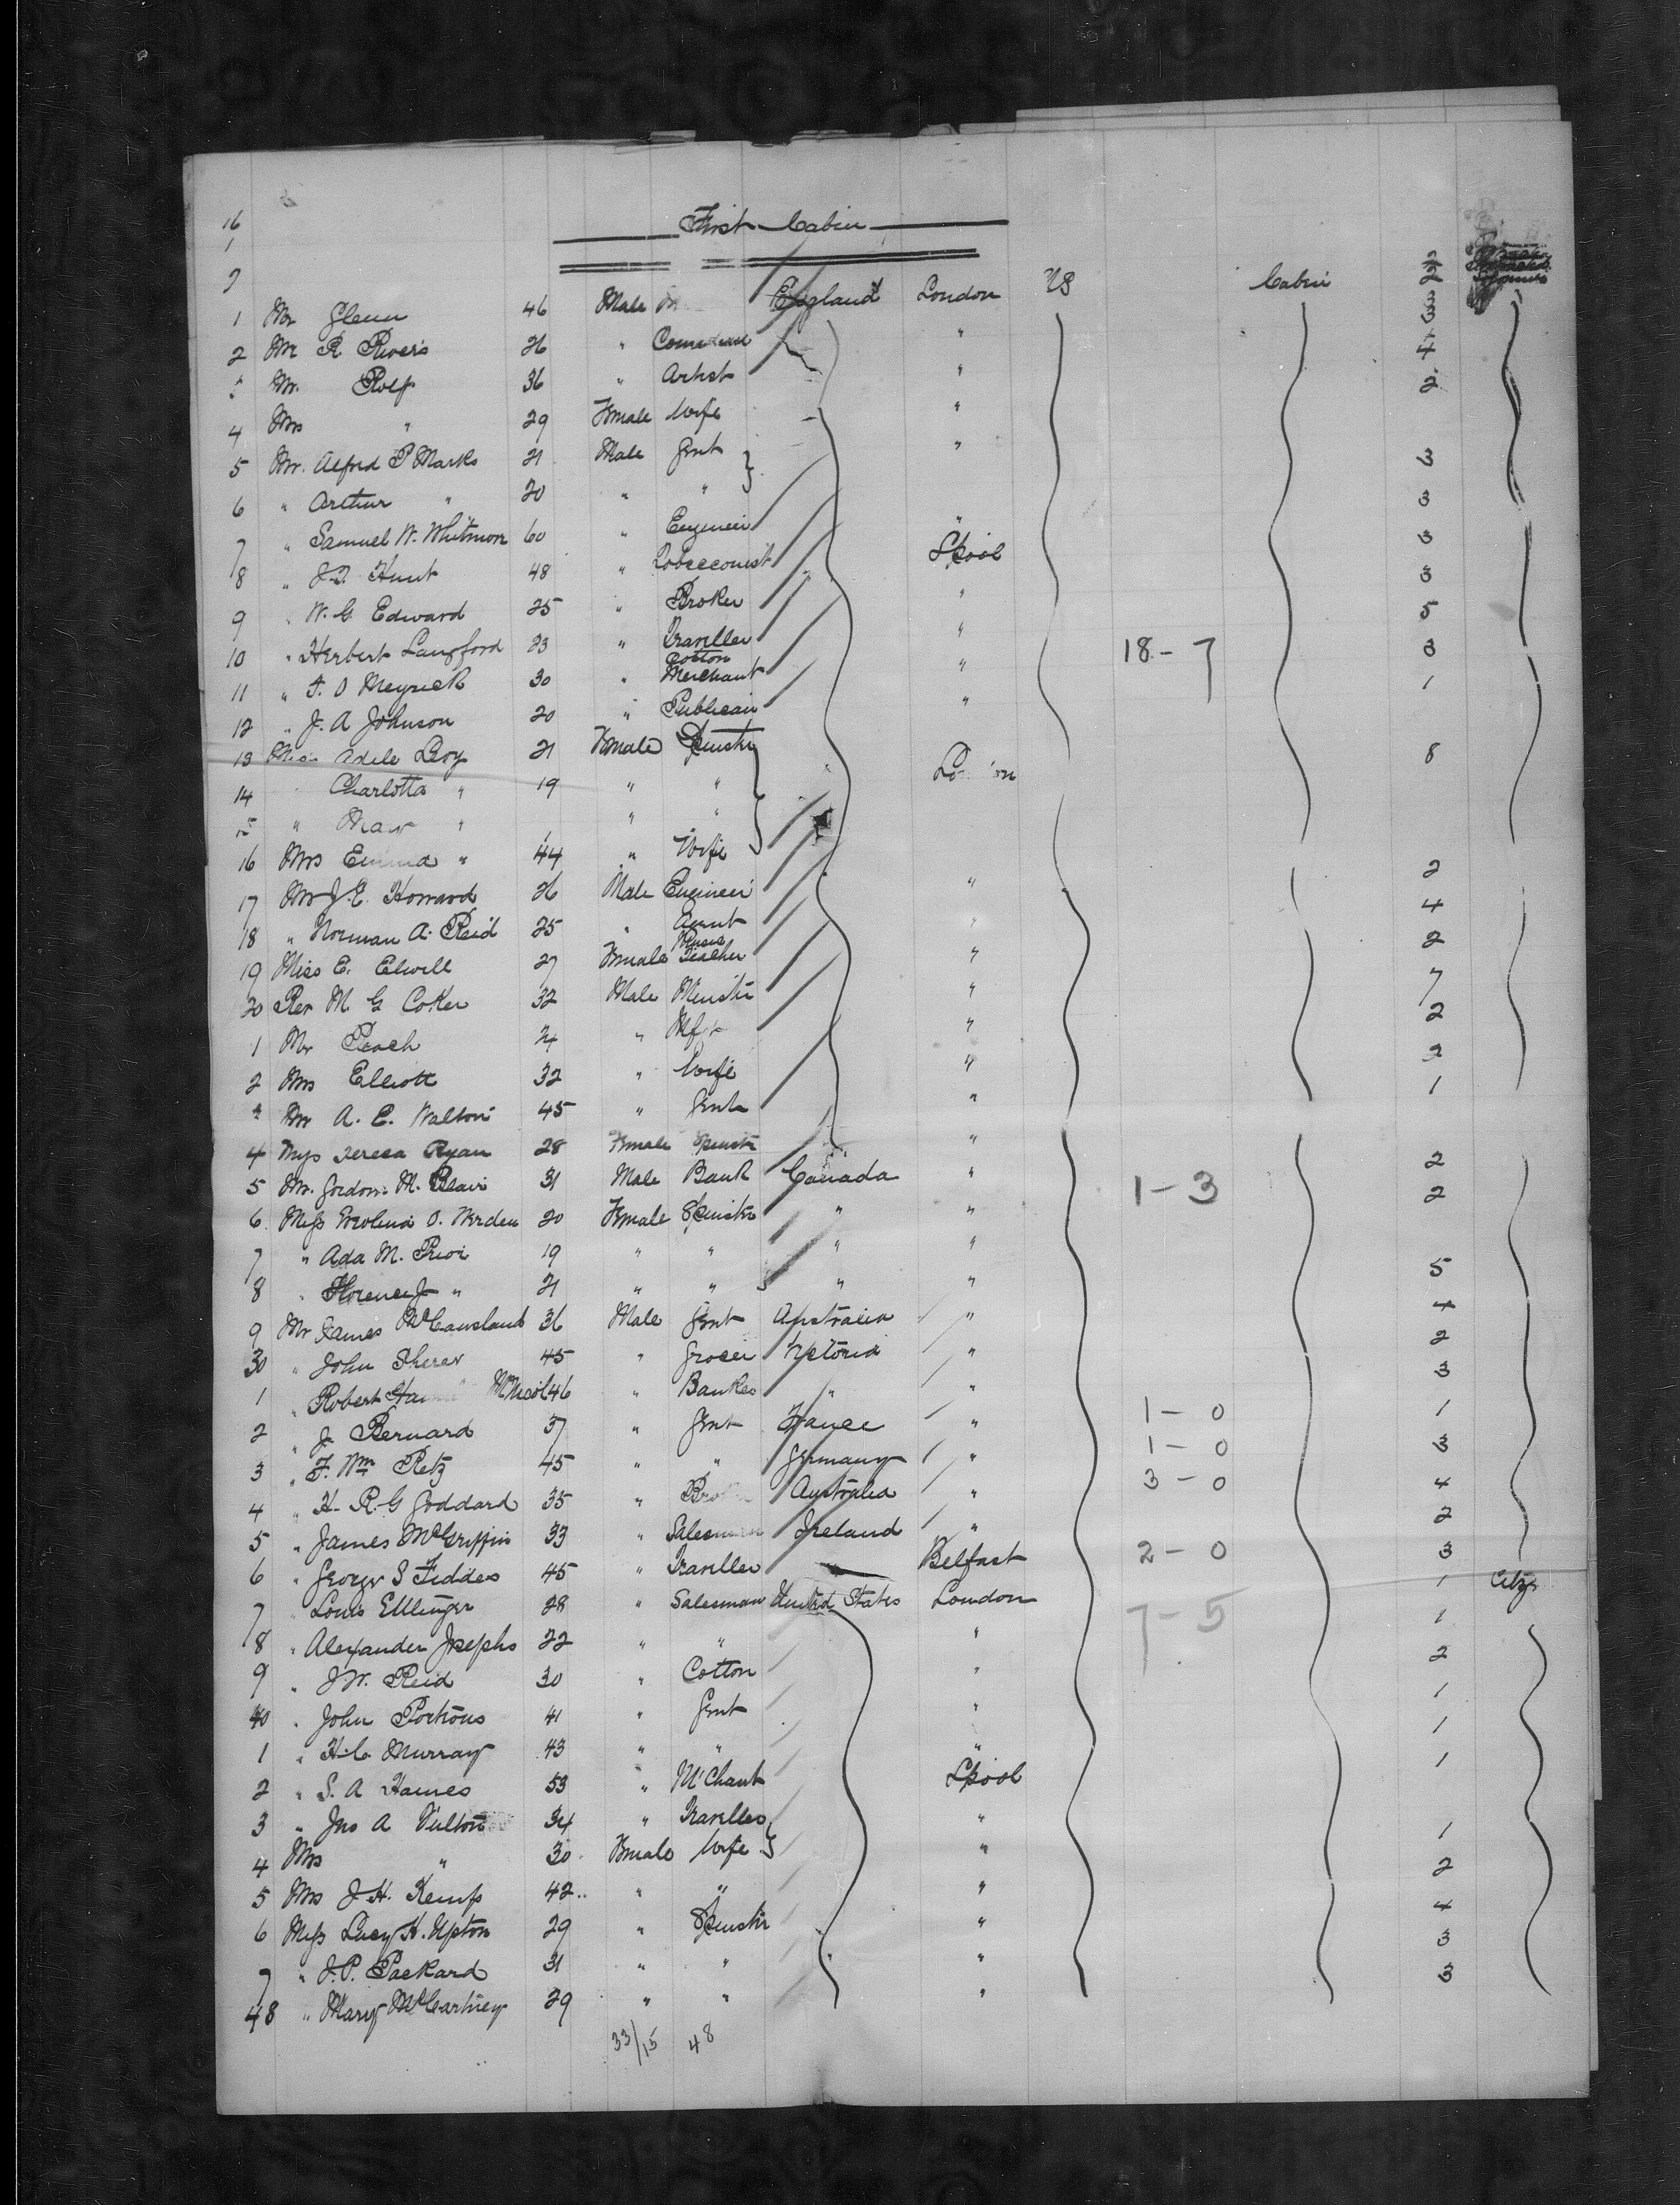 16
1
2
First Cabin
1 Mr Glenn 46 Male England London US Cabin 2
2 Mr R Rivers 26 " Comedian " 3
Mr. Rolf 36 " Artist " 4
4 Mrs " 29 Female Wife " 2
5 Mr. Alfred P Marks 21 Male Gent "
6 " Arthur " 20 " " 3
7 " Samuel W. Whitmore 60 " Engineer " 3
8 " J.D. Hunt 48 " Tobacconist L'pool 3
9 " W. G. Edward 25 " Broker " 3
10 " Herbert Langford 23 " Traveller " 18-7 5
11 " F. O Meyrick 30 " Cotton Merchant " 3
12 " J. A Johnson 20 " Publican " 1
13 Miss Adele Levy 21 Female Spinster
14 Charlotta " 19 " " 8
15 " " " "
16 Mrs Emma " 44 " Wife
17 Mr J. E. Howard 26 Male Engineer " 2
18 " Norman A. Reid 25 " Agent " 4
19 Miss E. Elwell 27 Female Music Teacher " 2
20 Rev M G Coker 32 Male Ministr " 7
1 Mr Peach 24 " " 2
2 Mrs Elliott 32 " Wife " 2
Mr A. E. Walton 45 " Gent " 1
4 Miss Teresa Ryan 28 Female Spinstr "
5 Mr. Gordon M. Blair 31 Male Bank Canada " 1-3 2
6 Miss O. Werden 20 Female Spinstr " " 2
7 " Ada M. Prior 19 " " " "
8 " Florence J " 21 " " " " 5
9 Mr James McCausland 36 Male Gent Australia " 4
30 " John Sherer 45 " Grocer Victoria " 2
1 " Robert McNicol 46 " Banker " " 3
2 " J. Bernard 37 " Gent France " 1-0 1
3 " F. Wm Retz 45 " " Germany " 1-0 3
4 " H. R. G Goddard 35 " Australia " 3-0 4
5 " James McGriffin 33 " Salesman Ireland " 2
6 " George S Fiddes 45 " Traveller Belfast 2-0 3
7 " Louis Ellinger 28 " Salesman United States London 7-5 1 Citzn
8 " Alexander Josephs 22 " " " 1
9 " J. W. Reid 30 " Cotton " 2
40 " John Porteous 41 " Gent " 1
1 " H.C. Murray 43 " " " 1
2 " S. A Hames 53 " M'Chant L'pool 1
3 " Jno A Fulton 34 " Traveller "
4 Mrs " 30 Female Wife " 1
5 Mrs J. H. Kemp 42 " " " 2
6 Miss Lucy H. Upton 29 " Spinstr " 4
7 " J. P. Packard 31 " " " 3
48 " Mary McCartney 29 " " " 3
33/15 48